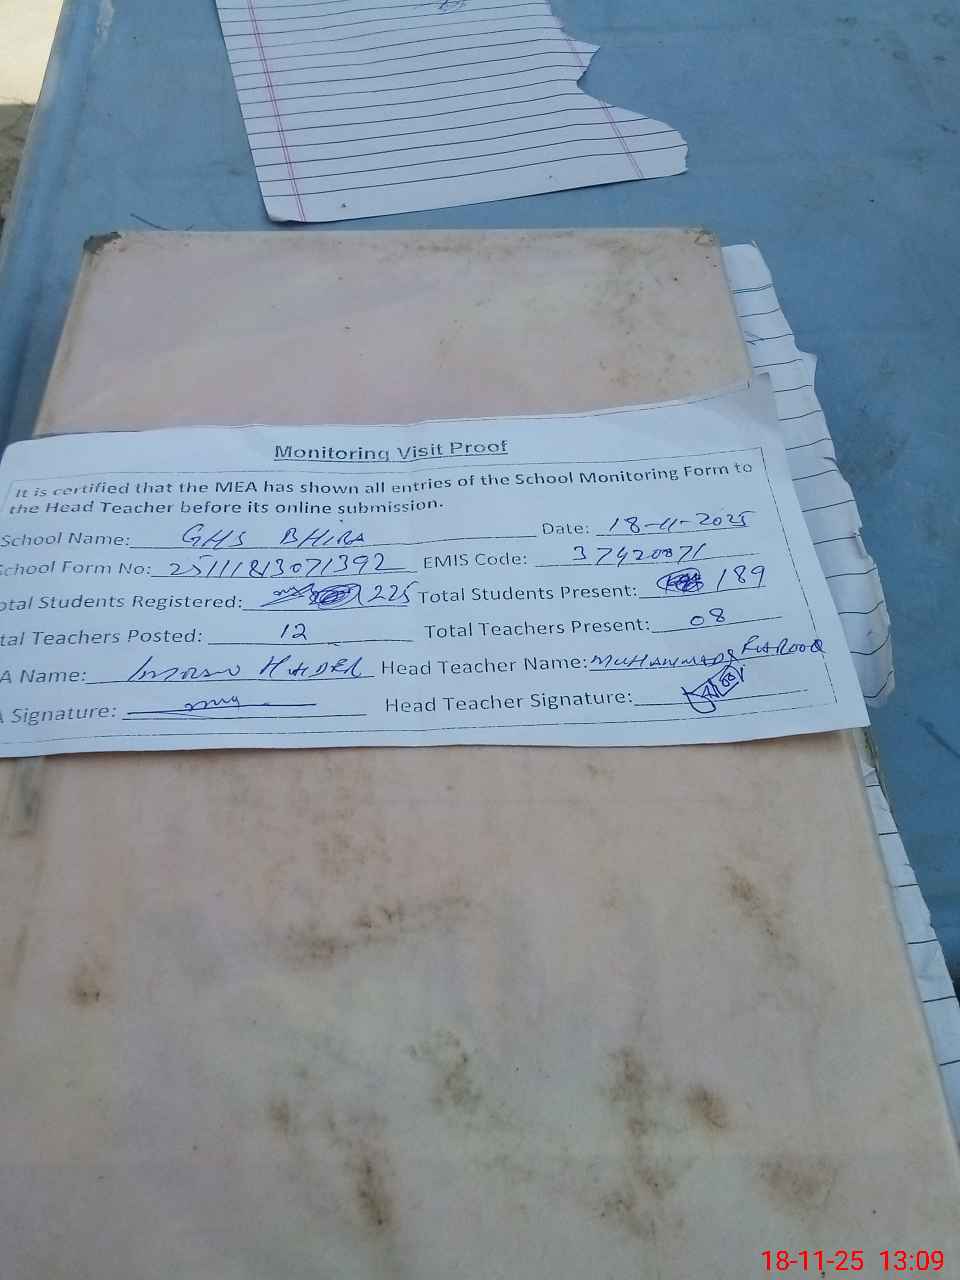 Monitoring Visit Proof
It is certified that the MEA has shown all entries of the School Monitoring Form to
the Head Teacher before its online submission.
School Name: GHS BHIRA Date: 18-11-2025
School Form No: 25111813071392 EMIS Code: 37420871
otal Students Registered: 225 Total Students Present: 189
tal Teachers Posted: 12 Total Teachers Present: 08
A Name: IMRAN HAIDER Head Teacher Name: MUHAMMAD FAROOQ
A Signature: Head Teacher Signature:
18-11-25 13:09